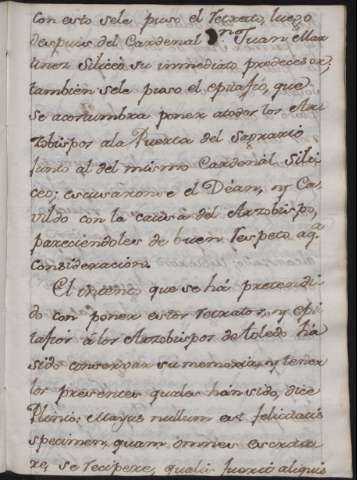 con esto sele puso el Retrato, luego
despues del Cardenal Dn. Juan Mar
tinez Siliceo su inmediato predecesor,
tambien sele puso el epitafio, que
se acostumbra poner atodos los Ar
zobispos ala Puerta del Sagrario
junto al del mismo Cardenal Sili
ceo; escusaronse el Dean, y Ca
vildo con la causa del Arzobispo,
pareciendoles de buen respeto aqa.
consideracion.
El intento que se há pretendi
do con poner estos retratos, y epi
tafios á los Arzobispos de toledo há
sido conservar su memoria, y tener
los presentes quales hán sido, dice
Plinio: Majus nullum est felicitatis
specimen, quam omnes
re, se recipere, qualis fuerit aliquis